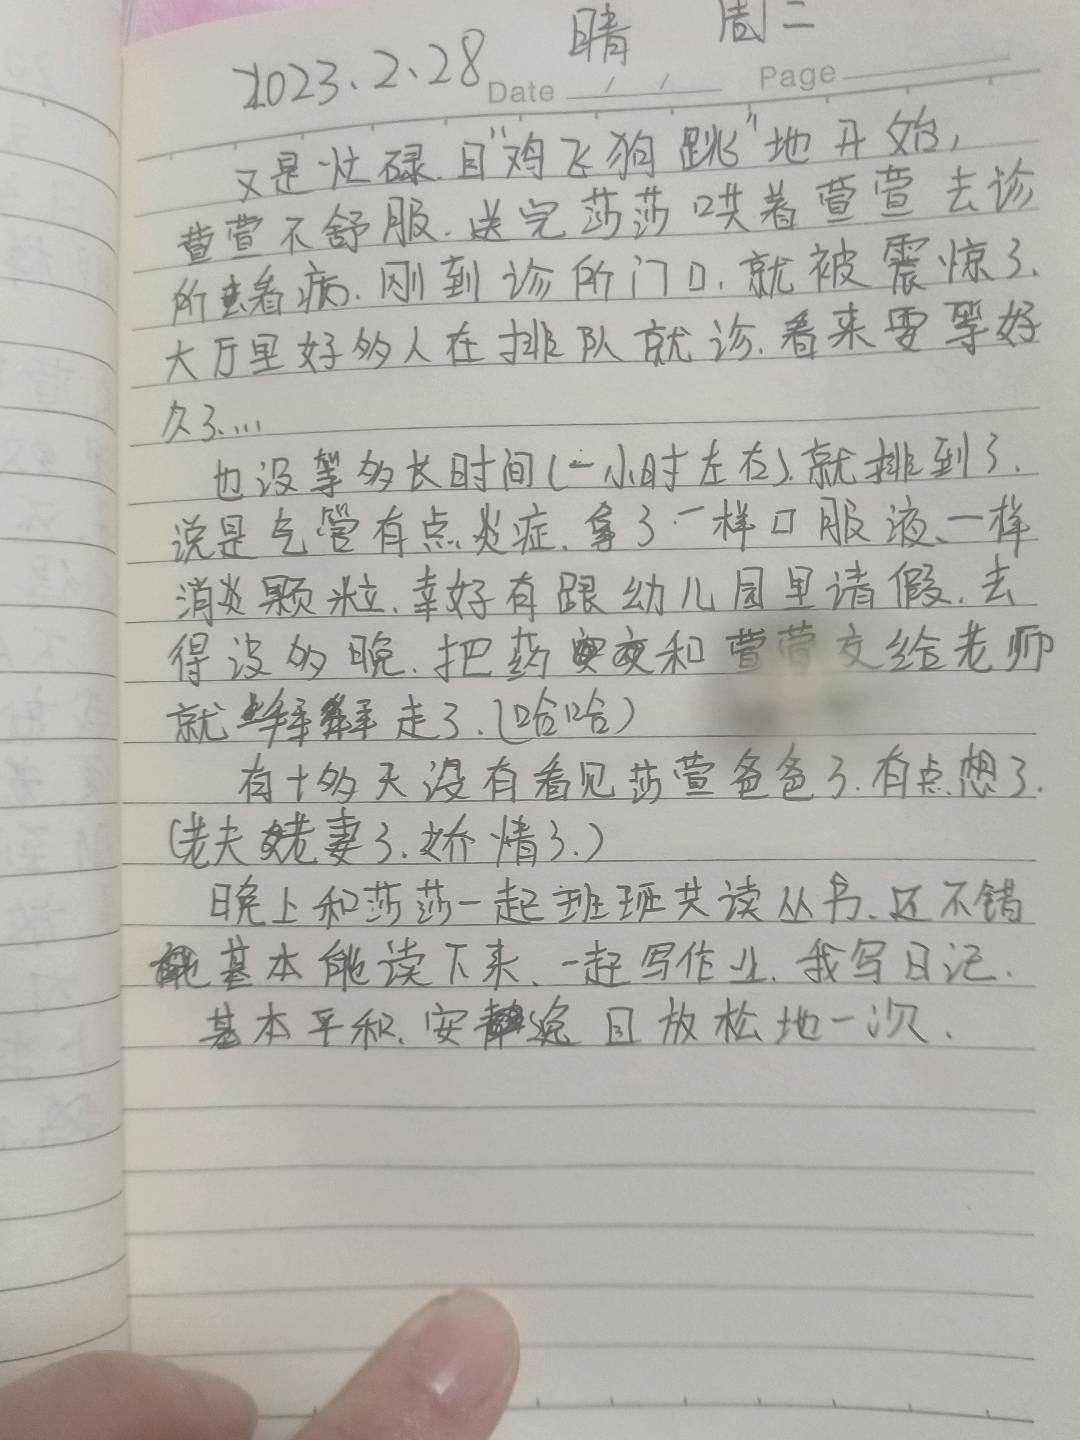 2023.2.28 晴 周二
Date / / Page
又是忙碌.且"鸡飞狗跳"地开始,
萱萱不舒服.送完莎莎哄着萱萱去诊
所看病.刚到诊所门口.就被震惊了.
大厅里好多人在排队就诊.看来要等好
久了....
也没等多长时间(一小时左右).就排到了.
说是气管有点炎症.拿了一样口服液、一样
消炎颗粒.幸好有跟幼儿园里请假.去
得没多晚.把药和萱萱交给老师
就走了.(哈哈)
有十多天没有看见莎萱爸爸了.有点想了.
(老夫老妻了.娇情了.)
晚上和莎莎一起班班共读丛书.还不错
基本能读下来.一起写作业.我写日记.
基本平和.安逸且放松地一次.